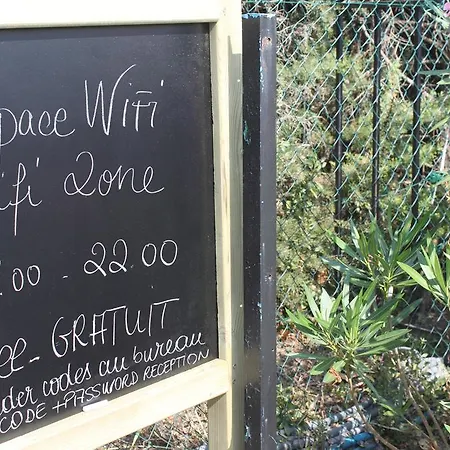 pace WiFi
ifi Zone
.00 - 22 00
ee - GRATUIT
der codes au bureau
CODE + PASSWORD RECEPTION